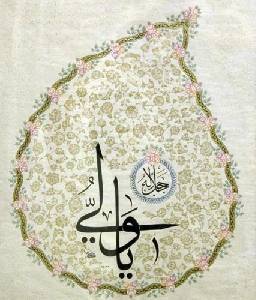 يا وليّ
جل جلاله